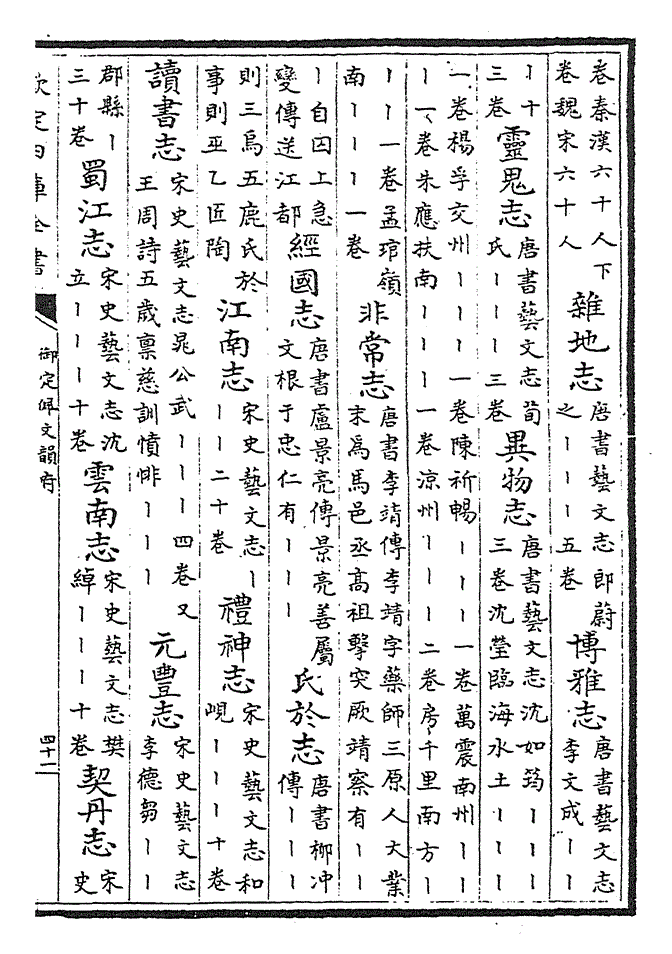 卷秦漢六十人下
卷魏宋六十人
雜地志
唐書藝文志郎蔚
之〡〡〡五卷
博雅志
唐書藝文志
李文成〡〡
〡十
三卷
靈鬼志
唐書藝文志荀
氏〡〡〡三卷
異物志
唐書藝文志沈如筠〡〡〡
三卷沈瑩臨海水土〡〡〡
一卷楊孚交州〡〡〡一卷陳祈暢〡〡〡一卷萬震南州〡〡
〡一卷朱應扶南〡〡〡一卷涼州〡〡〡二卷房千里南方〡
〡〡一卷孟琯嶺
南〡〡〡一卷
非常志
唐書李靖傳李靖字藥師三原人大業
末為馬邑丞高祖擊突厥靖察有〡〡
〡自囚上急
變傳送江都
經國志
唐書盧景亮傳景亮善屬
文根于忠仁有〡〡〡
氏於志
唐書柳冲
傳〡〡〡
則三烏五鹿氏於
事則巫乙匠陶
江南志
宋史藝文志〡
〡〡二十卷
禮神志
宋史藝文志和
峴〡〡〡十卷
讀書志
宋史藝文志晁公武〡〡〡四卷又
王周詩五歲禀慈訓憤悱〡〡〡
元豐志
宋史藝文志
李德芻〡〡
郡縣〡
三十卷
蜀江志
宋史藝文志沈
立〡〡〡十卷
雲南志
宋史藝文志樊
綽〡〡〡十卷
契丹志
宋
史
欽定四庫全書
御定佩文韻府
四十一